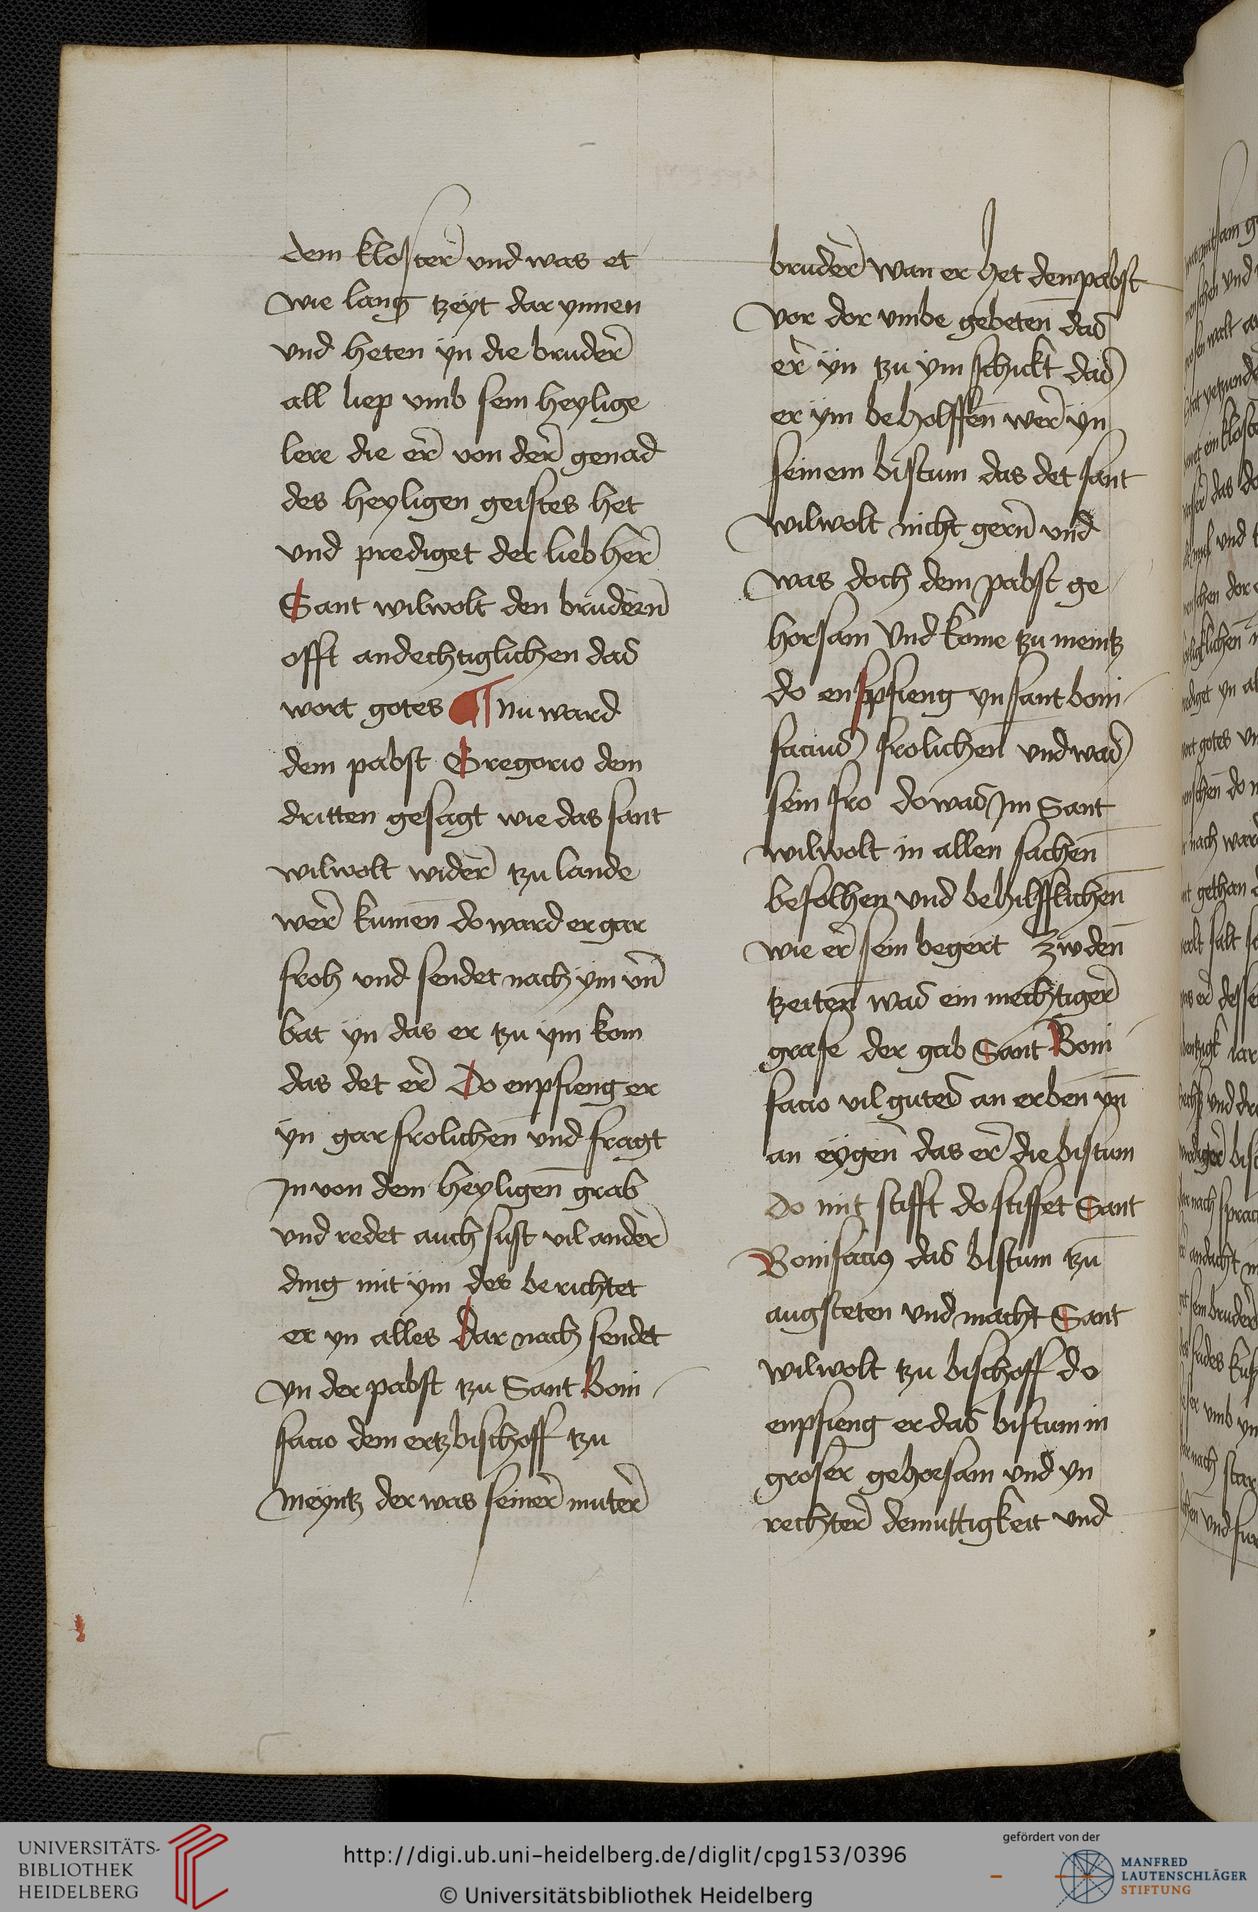 dem kloster und was et
wie lang tzeyt dar ynnen
und heten yn die bruder
all liep umb sein heylige
lere die er von der genad
des heyligen geistes het
und prediget der lieb her
Sant wilwolt den brudern
offt andechtiglichen das
wort gotes ¶ Nu ward
dem pabst Gregorio dem
dritten gesagt wie das sant
wilwolt wider tzu lande
wer kumen do ward er gar
froh und sendet nach ym vn̄
bat yn das er tzu ym kom
das det er Do enpfieng er
yn gar frolichen und fragt
In von dem heyligen grab
und redet auch sust vil ander
ding mit ym des berichtet
er yn alles Dar nach sendet
yn der pabst tzu Sant Boni
facio dem ertzbischoff tzu
Meyntz der was seiner muter
bruder wan er het den pabst
vor dor umbe gebeten das
er yn tzu ym schickt das
er ym beholffen wer yn
seinem bistum das det sant
wilwolt nicht gern und
was doch dem pabst ge
horsam Und kome tzu meintz
do enpfieng yn sant boni
facius frolichen und was
sein fro do was Im Sant
wilwolt in allen sachen
befolhen und behilfflichen
wie er sein begert Zw den
tzeiten was ein mechtiger
grafe der gab Sant Boni
facio vil gutes an erben yn̄
an eygen das er die bistum
Do mit stifft do stiffet Sant
Bonifacius das bistum tzu
augsteten und macht Sant
wilwolt tzu bischoff do
enpfieng er das bistum in
groser gehorsam und yn
rechter demuttigkeit und
UNIVERSITÄTS-
BIBLIOTHEK
HEIDELBERG
http://digi.ub.uni-heidelberg.de/diglit/cpg153/0396
© Universitätsbibliothek Heidelberg
gefördert von der
MANFRED
LAUTENSCHLÄGER
STIFTUNG